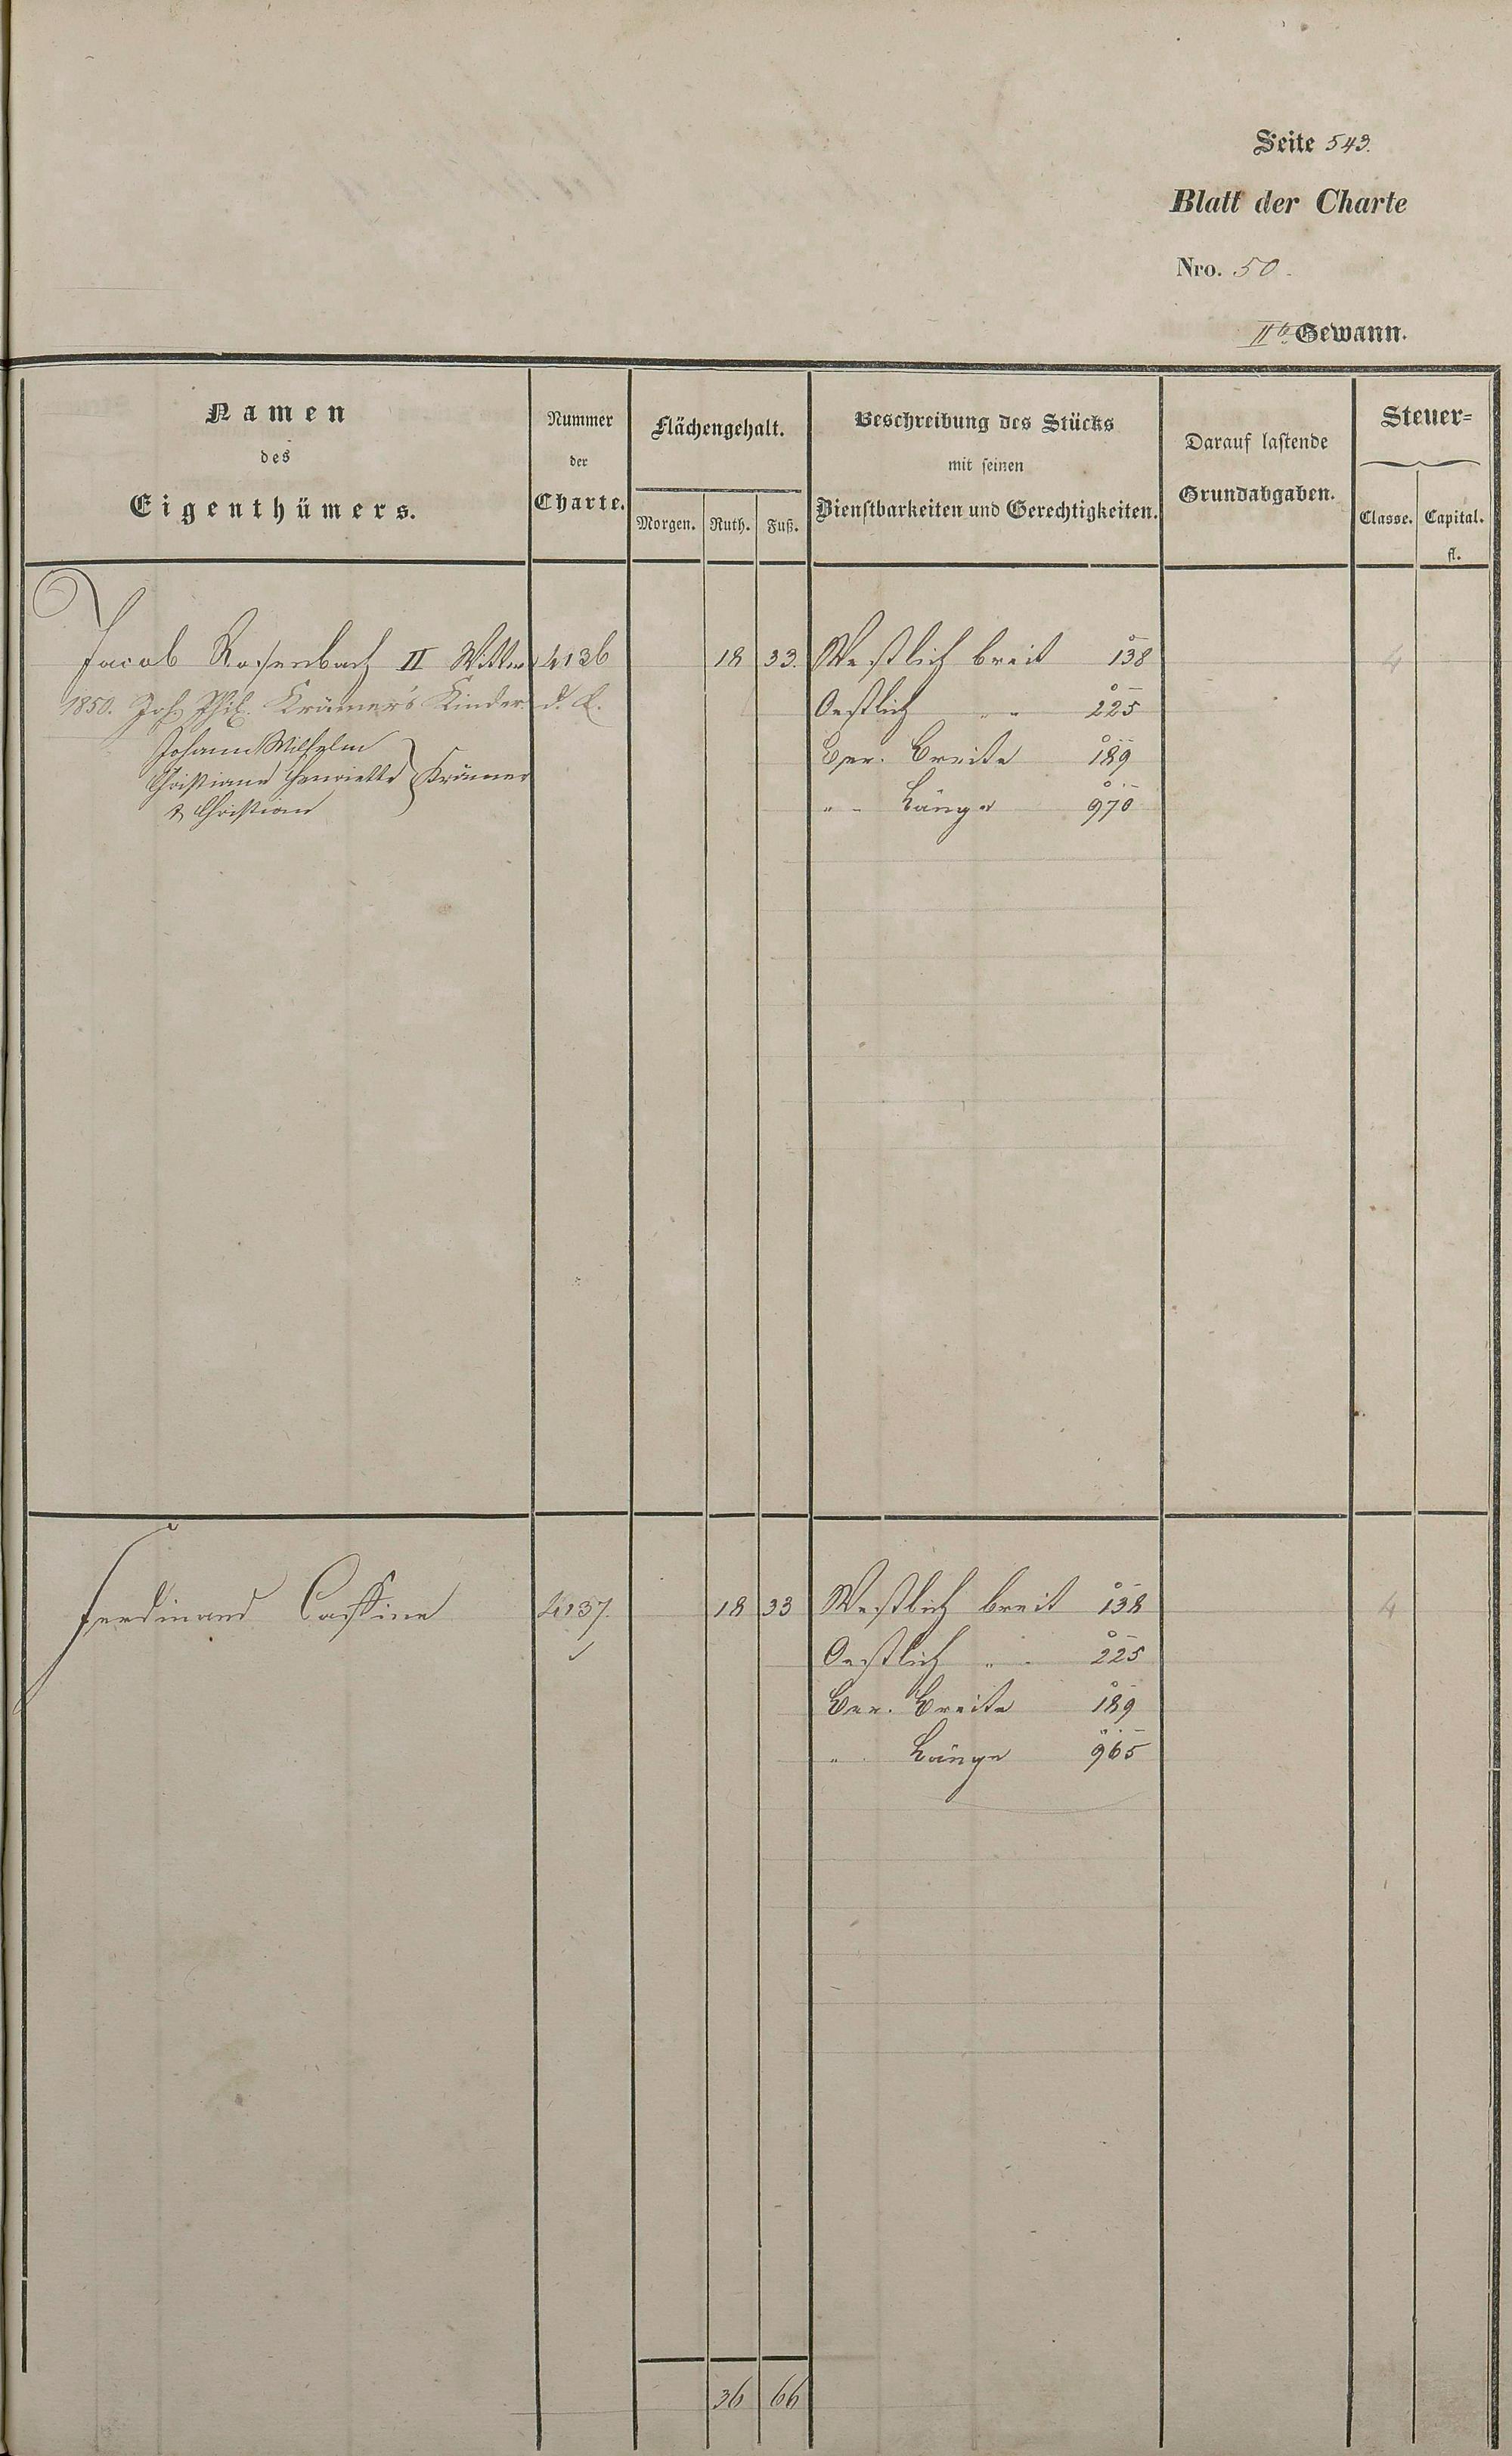 Seite 543.
Blatt der Charte
Nro. 50.
IIte Gewann.
Namen
des
Eigenthümers.
Nummer
der
Charte.
Flächengehalt.
Morgen. Ruth. Fuß.
Beschreibung des Stücks
mit seinen
Dienstbarkeiten und Gerechtigkeiten.
Darauf lastende
Grundabgaben.
Steuer-
Classe. Capital.
fl.
Jacob Rosenbach II Wittw 4136 18 33. Westlich breit 138 4
1850. Joh. Phil. Krämer's Kinder. Oestlich " " 225
Johann Wilhelm Ger. Breite 189
Christiane Henriette } Krämer
" " Länge 970
& Christian
Ferdinand 4137. 18 33 Westlich breit 138 4
Oestlich " " 225
Ger. Breite 189
" Länge 965
36 66